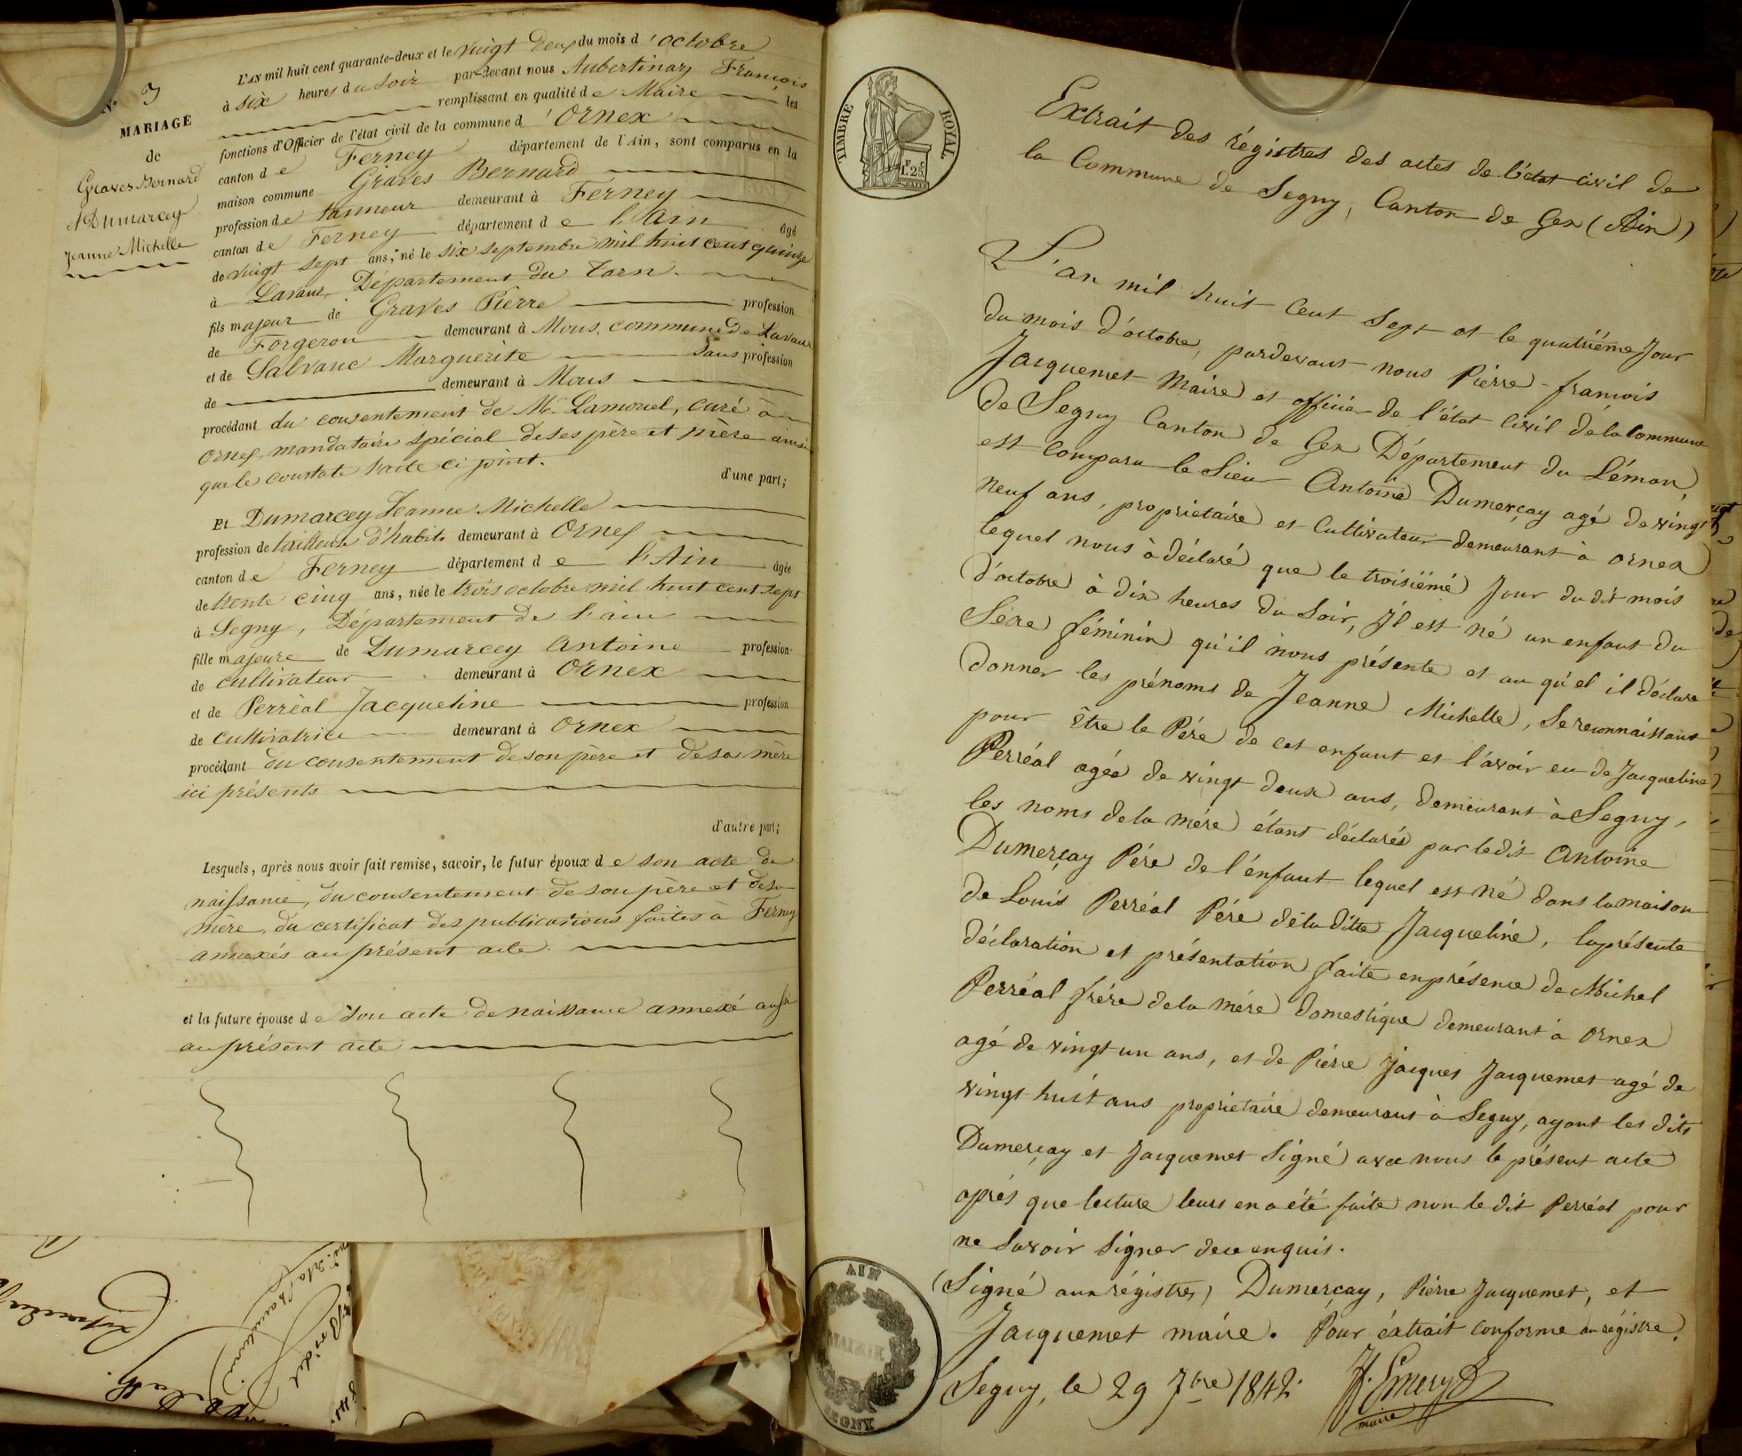 L'AN mil huit cent quarante-deux et le vingt deux du mois d'octobre
à six heures du soir par-devant nous Aubertinaz François
remplissant en qualité de Maire les
fonctions d'Officier de l'état civil de la commune d'Ornex
canton de Ferney département de l'Ain, sont comparus en la
maison commune Graves Bernard
profession de tanneur demeurant à Ferney
canton de Ferney département de l'Ain âgé
de vingt sept ans, né le six septembre mil huit cent quinze
à Lavaur, Département du Tarn.
fils majeur de Graves Pierre profession
de Forgeron demeurant à Mous, commune de Lavaur
et de Salvanc Marguerite Sans profession
de demeurant à Mous
procédant du consentement de Mr. Lamouel, curé à
Ornex, mandataire spécial de ses père et mère ainsi
que le constate l'acte ci joint.
d'une part;
Et Dumarcey Jeanne Michelle
profession de tailleuse d'habits demeurant à Ornex
canton de Ferney département de l'Ain âgée
de trente cinq ans, née le trois octobre mil huit cent sept
à Segny, Département de l'ain
fille majeure de Dumarcey Antoine profession
de cultivateur demeurant à Ornex
et de Perréal Jacqueline profession
de cultivatrice demeurant à Ornex
procédant du consentement de son père et de sa mère
ici présents
d'autre part;
Lesquels, après nous avoir fait remise, savoir, le futur époux de son acte de
naissance, du consentement de son père et de sa
mère, du certificat des publications faites à Ferney
annexés au présent acte.
et la future épouse de son acte de naissance annexé aussi
au présent acte
N° 3
MARIAGE
de
Graves Bernard
& Dumarcey
Jeanne Michelle
TIMBRE ROYAL
1 F. 25 C.
Extrait des régistres des actes de l'état civil de
la Commune de Segny, Canton de Gex (Ain)
L'an mil huit cent sept et le quatriéme jour
du mois d'octobre, pardevant nous Pierre-francois
Jacquemet Maire et officier de l'état civil de la Commune
de Segny Canton de Gex Département du Léman,
est comparu le Sieur Antoine Dumerçay agé de vingt
neuf ans, propriétaire et Cultivateur demeurant à Ornex
lequel nous à déclaré que le troisiémé jour du dit mois
d'octobre à dix heures du Soir, Il est né un enfant du
Séxe féminin qu'il nous présente et au qu'el il déclare
donner les prénoms de Jeanne Michelle, Se reconnaissant
pour être le Pére de cet enfant et l'avoir eu de Jacqueline
Perréal agée de vingt deux ans, demeurant à Segny,
les noms de la mére étant déclarés par ledit Antoine
Dumerçay Pére de l'énfant lequel est né dans la maison
de Louis Perréal Pére de la ditte Jacqueliné, la présente
déclaration et présentation faite en présence de Michel
Perréal frére de la mére domestique demeurant à Ornex
agé de vingt un ans, et de Piérre Jacques Jacquemet agé de
vingt huit ans propriétaire demeurant à Segny, ayant les dits
Dumerçay et Jacquemet Signé avec nous le présent acte
aprés que lecture leurs en a été faite non le dit Perréal pour
ne Savoir Signer de ce enquis.
(Signé aux régistres) Dumerçay, Pierre Jacquemet, et
Jacquemet maire. Pour éxtrait conforme au régistre.
Segny, le 29 7bre 1842.
maire
AIN
MAIRIE
SEGNY